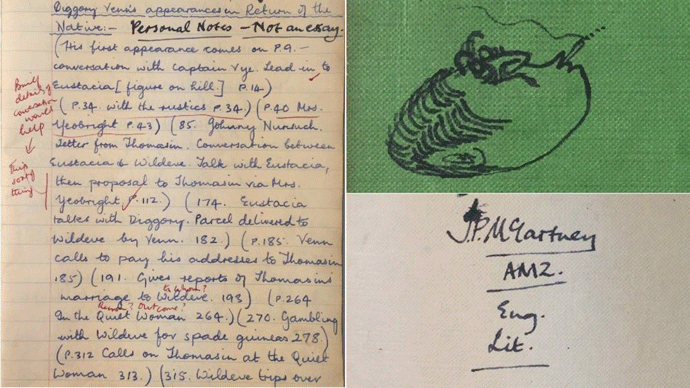 Diggory Venn's appearances in Return of the
Native:- Personal Notes - Not an essay.
(His first appearance comes on P.9. -
conversation with Captain Vye. Lead in to
Eustacia [figure on hill.] P.14)
(P.34 with the rustics P.34) (P.40 Mrs.
Yeobright P.43) (85. Johnny Nunsuch.
Letter from Thomasin. Conversation between
Eustacia & Wildeve. Talk with Eustacia,
then proposal to Thomasin via Mrs.
Yeobright P.112) (174. Eustacia
talks with Diggory. Parcel delivered to
Wildeve by Venn. 182.) (P.185. Venn
calls to pay his addresses to Thomasin
185) (191. Gives reports of Thomasin's
to whom?
marriage to Wildeve. 193) (P.264
Reason? Outcome?
In the Quiet Woman 264.) (270. Gambling
with Wildeve for spade guineas 278)
(P.312 Calls on Thomasin at the Quiet
Woman 313.) (315. Wildeve trips over
Brief
details of
conversation
would
help
This
sort of
thing
J.P. McCartney
AM2.
Eng.
Lit.